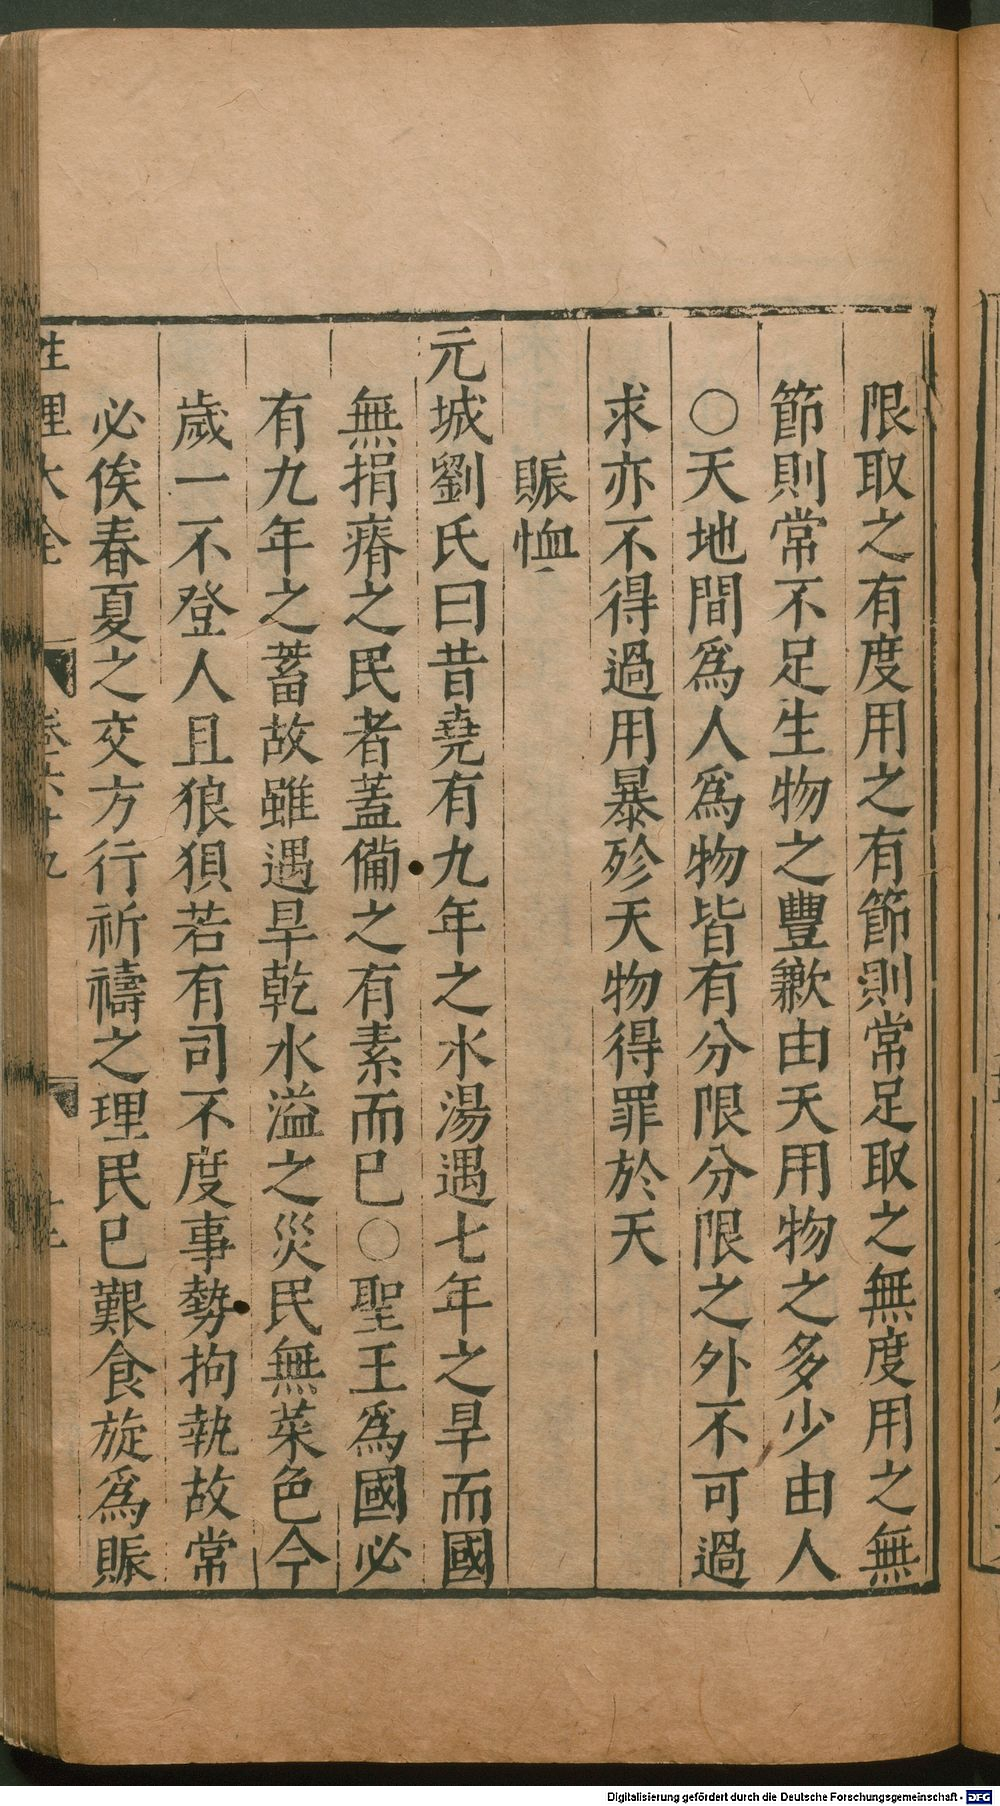 限取之有度用之有節則常足取之無度用之無
節則常不足生物之豐歉由天用物之多少由人
○天地間爲人爲物皆有分限分限之外不可過
求亦不得過用暴殄天物得罪於天
賑恤
元城劉氏曰昔堯有九年之水湯遇七年之旱而國
無捐瘠之民者蓋備之有素而已○聖王爲國必
有九年之蓄故雖遇旱乾水溢之災民無菜色今
歲一不登人且狼狽若有司不度事勢拘執故常
必俟春夏之交方行祈禱之理民已艱食旋爲賑
性理大全 卷六十九
Digitalisierung gefördert durch die Deutsche Forschungsgemeinschaft - DFG